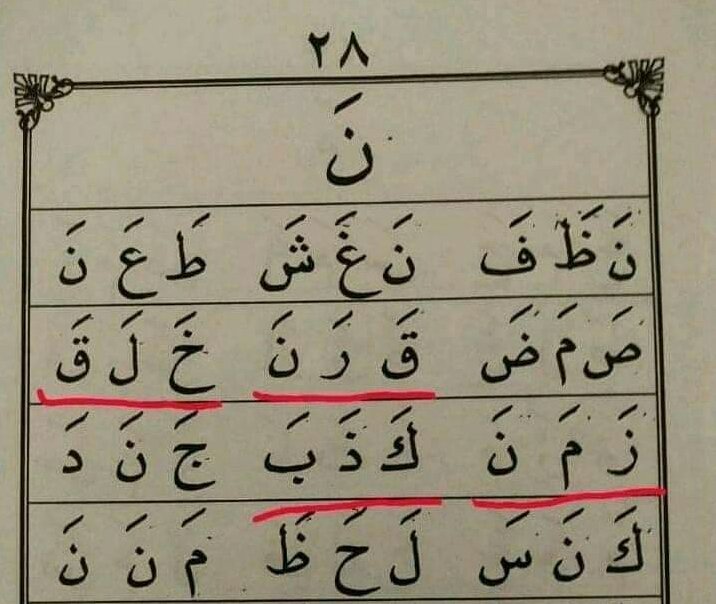 ٢٨
نَ
نَ ظَ فَ نَ غَ شَ طَ عَ نَ
صَ مَ ضَ قَ رَ نَ خَ لَ قَ
زَ مَ نَ كَ ذَ بَ جَ نَ دَ
كَ نَ سَ لَ حَ ظَ مَ نَ نَ